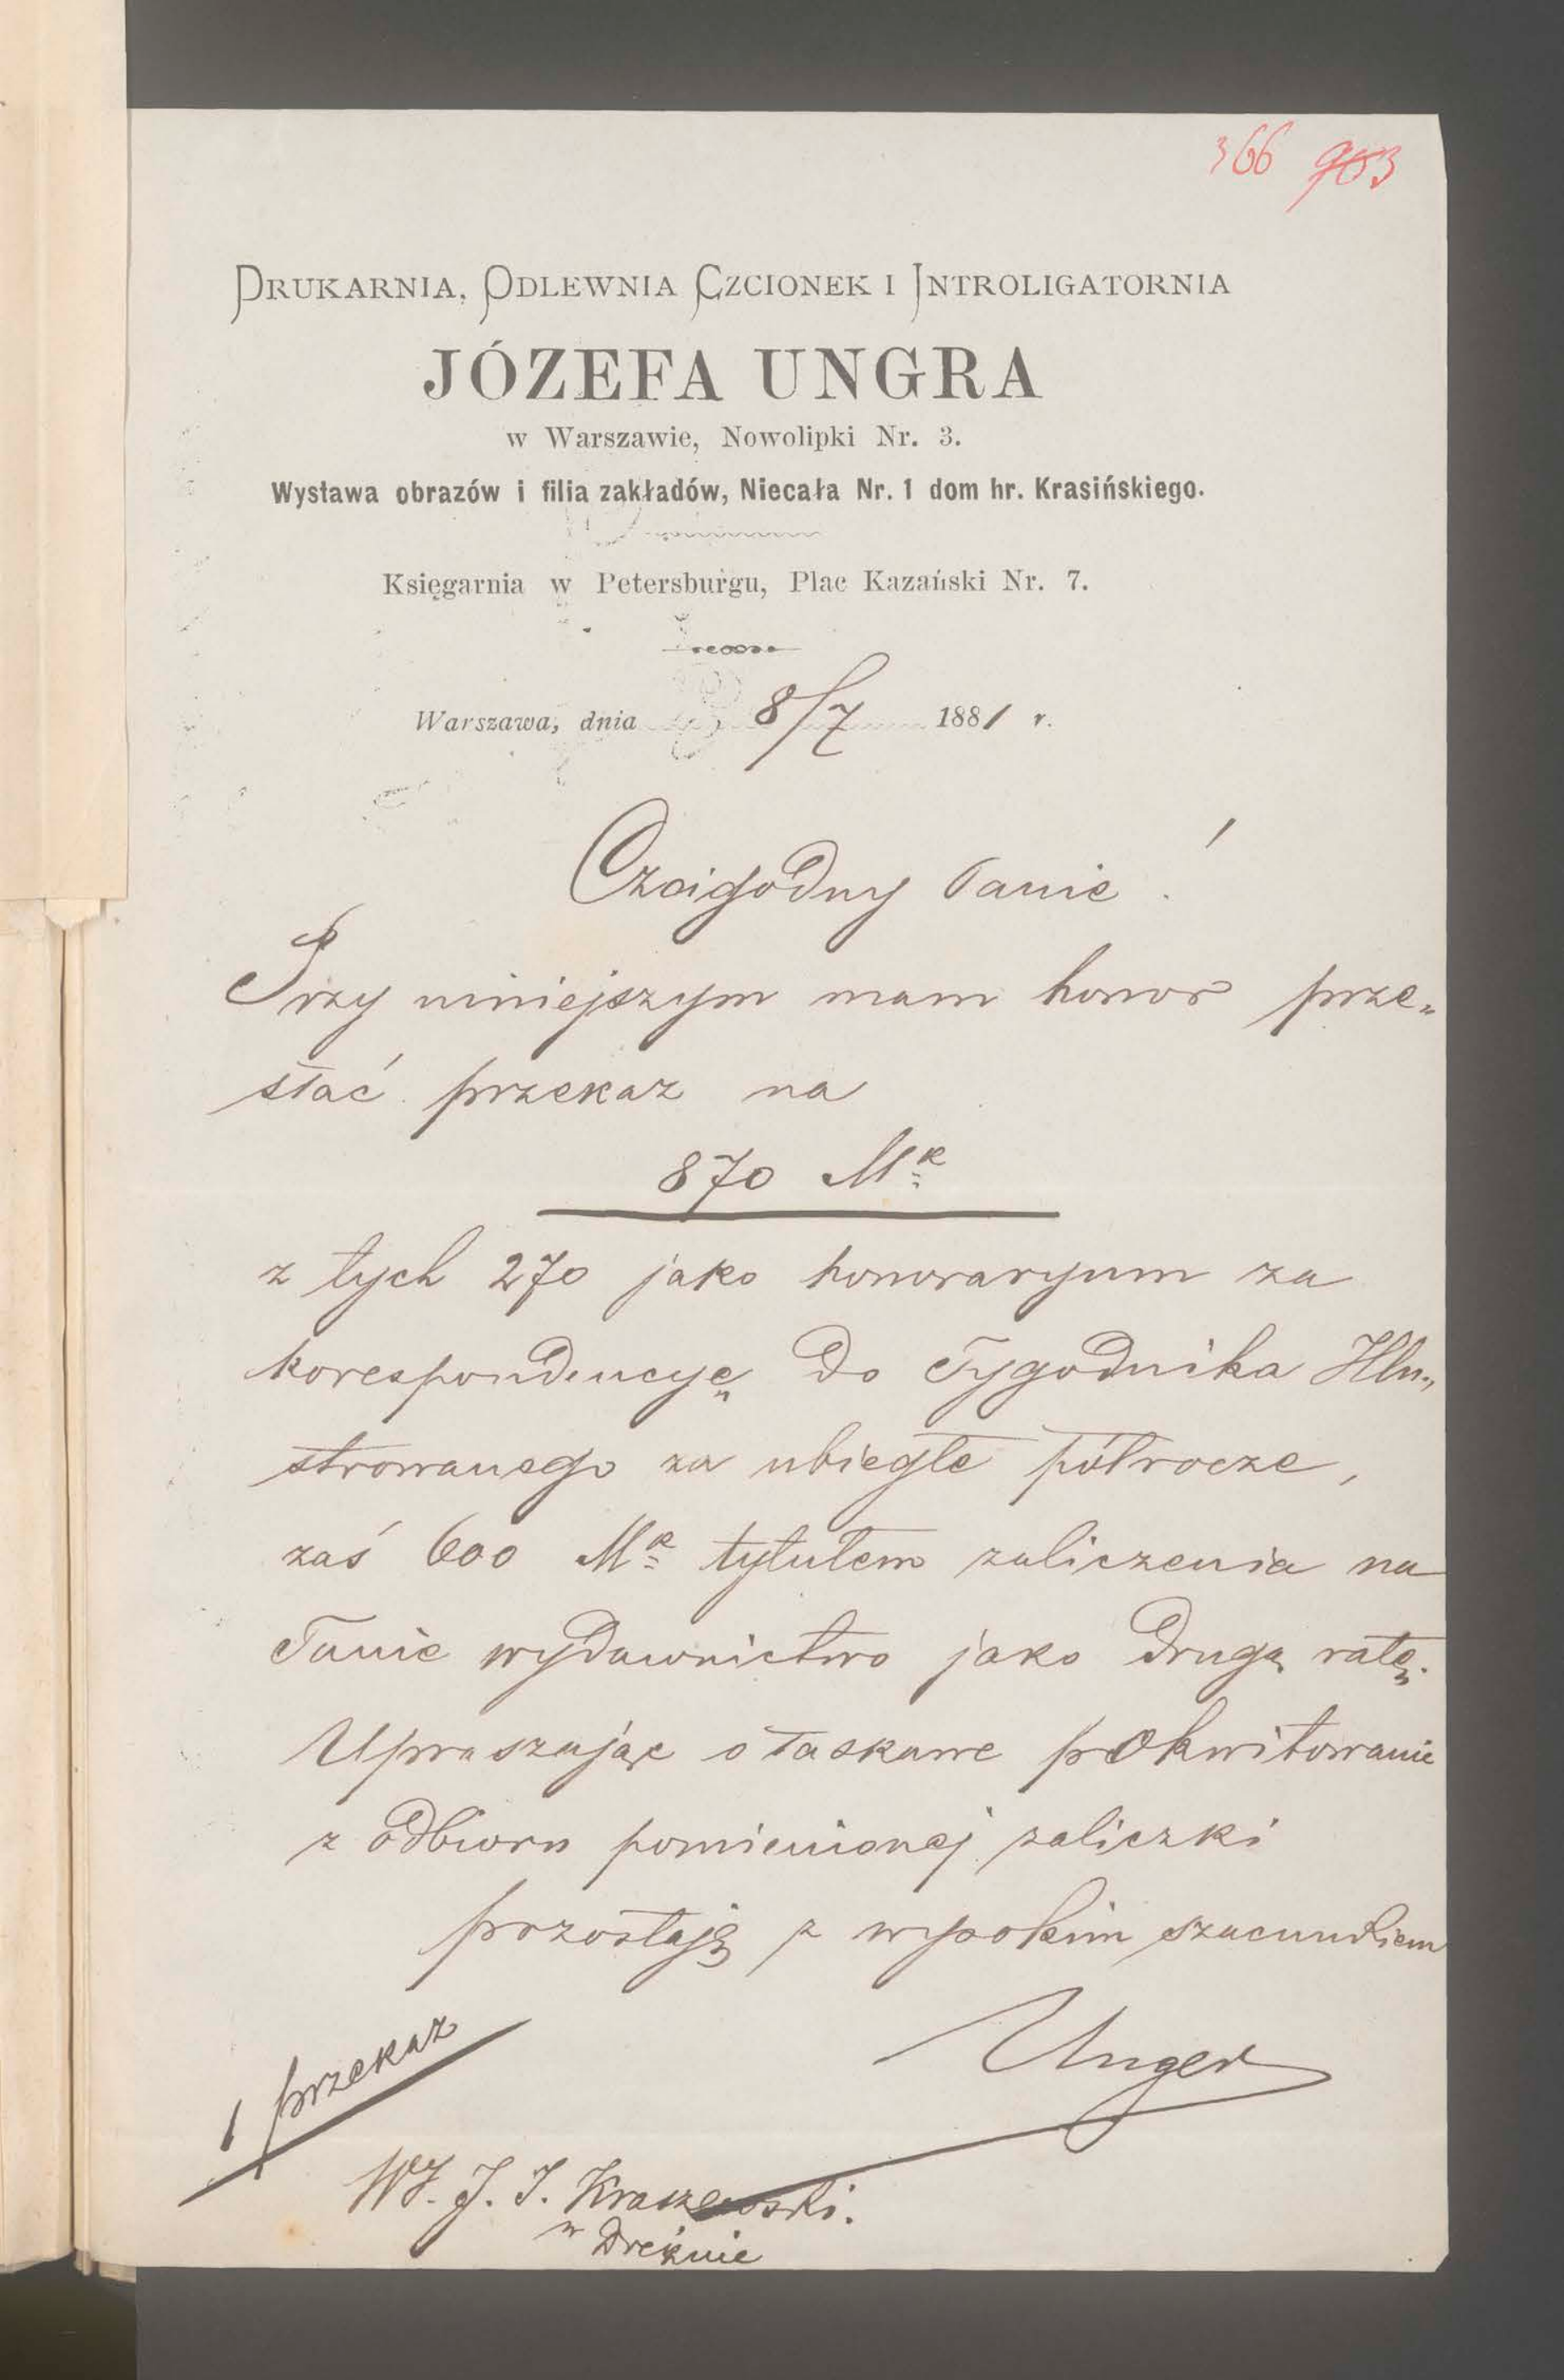 366 903
DRUKARNIA, ODLEWNIA CZCIONEK I INTROLIGATORNIA
JÓZEFA UNGRA
w Warszawie, Nowolipki Nr. 3.
Wystawa obrazów i filia zakładów, Niecała Nr. 1 dom hr. Krasińskiego.
Księgarnia w Petersburgu, Plac Kazański Nr. 7.
Warszawa, dnia 8/7 1881 r.
Czcigodny Panie!
Przy niniejszym mam honor prze„
słać przekaz na
870 Mk
z tych 270 jako honoraryum za
korespondencyę do Tygodnika Illu„
strowanego za ubiegłe półrocze,
zaś 600 Mk tytułem zaliczenia na
Tanie wydawnictwo jako drugą ratę.
Upraszając o łaskawe pokwitowanie
z odbioru pomienionej zaliczki
pozostaję z wysokim szacunkiem
Unger
1 przekaz
WJ. J. I. Kraszewski.
w Dreźnie